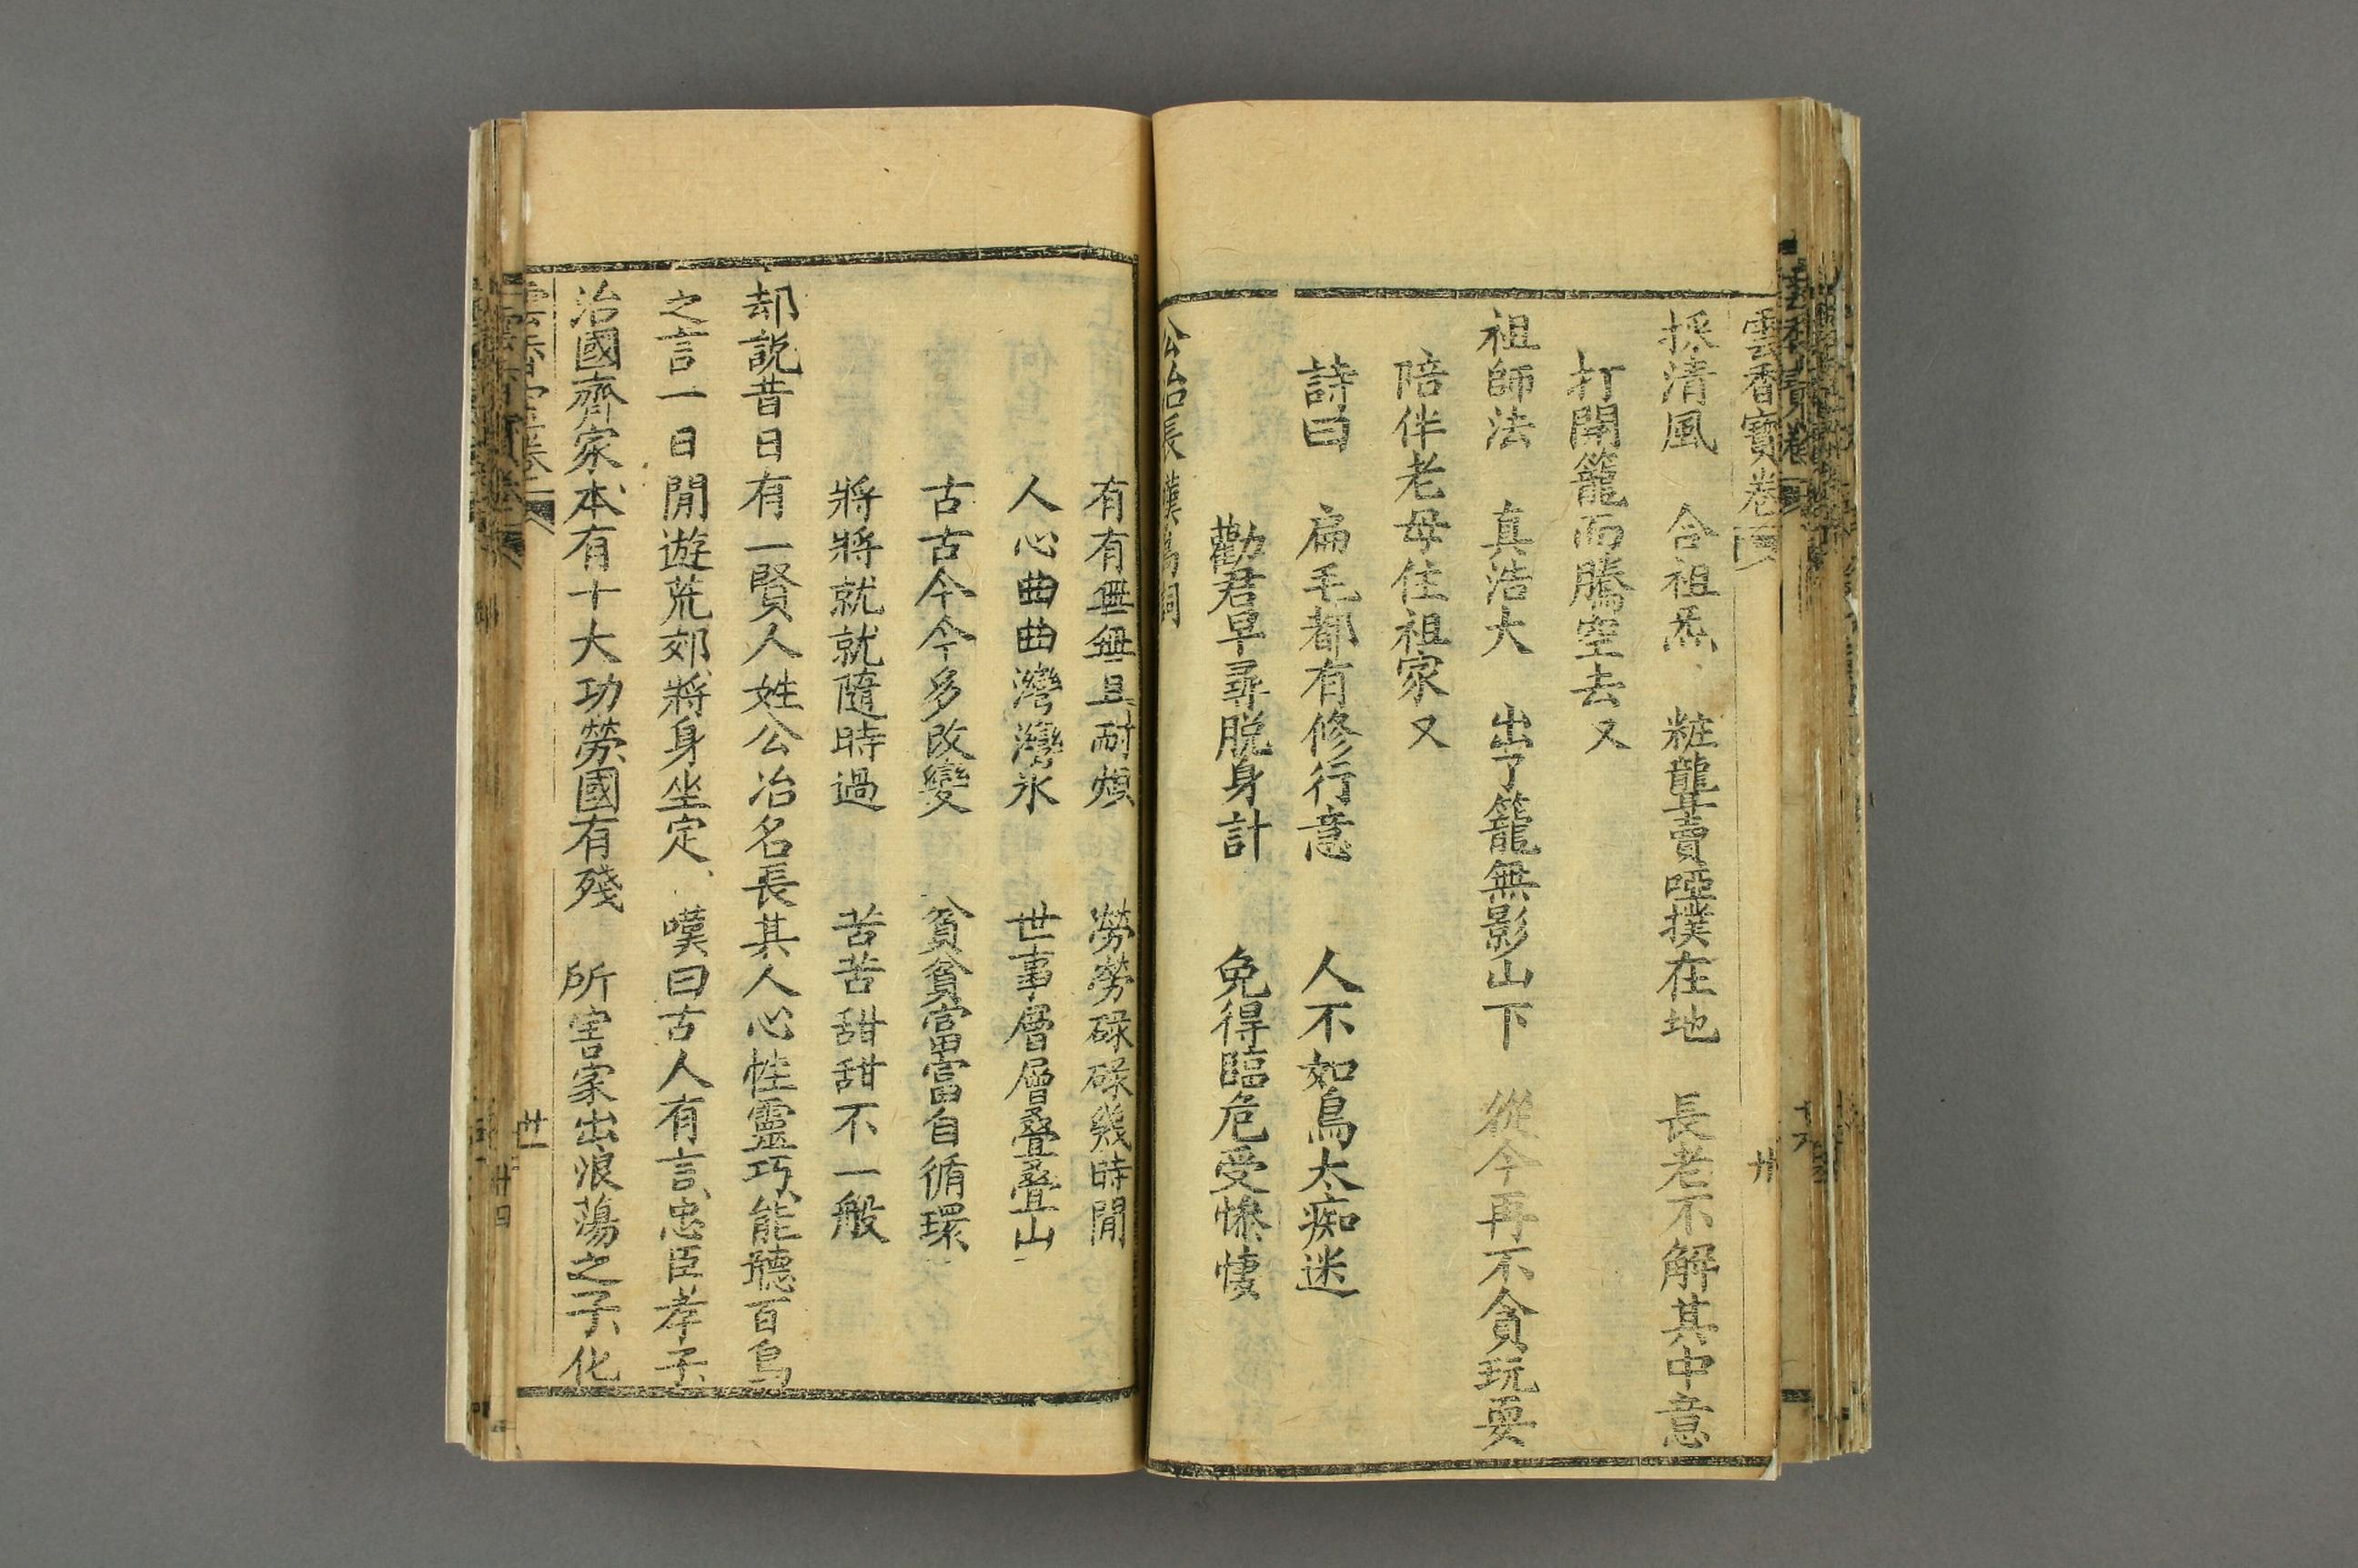 雲香寶卷 卅
採清風 合祖炁 粧聾賣啞撲在地 長老不解其中意
打開籠而騰空去又
祖師法 真浩大 出了籠無影山下 從今再不貪玩耍
陪伴老母住祖家又
詩曰 扁毛都有修行意 人不如鳥太痴迷
勸君早尋脱身計 免得臨危受慘悽
公冶長嘆鳥詞
有有無無且耐煩 勞勞碌碌幾時閒
人心曲曲灣灣氺 世事層層叠叠山
古古今今多改變 貧貧富富自循環
將將就就隨時過 苦苦甜甜不一般
却説昔日有一賢人姓公冶名長其人心性靈巧、能聽百鳥
之言一日閒遊荒郊、將身坐定、嘆曰古人有言、忠臣孝子、
治國齊家、本有十大功勞、國有殘 所害家出浪蕩之子、化